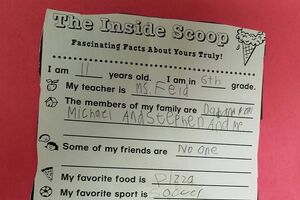 The Inside Scoop
Fascinating Facts About Yours Truly!
I am 11 years old. I am in 6th grade.
My teacher is Ms. Feld
The members of my family are
Michael And Stephen And me
Some of my friends are No One
My favorite food is Pizza
My favorite sport is Soccer